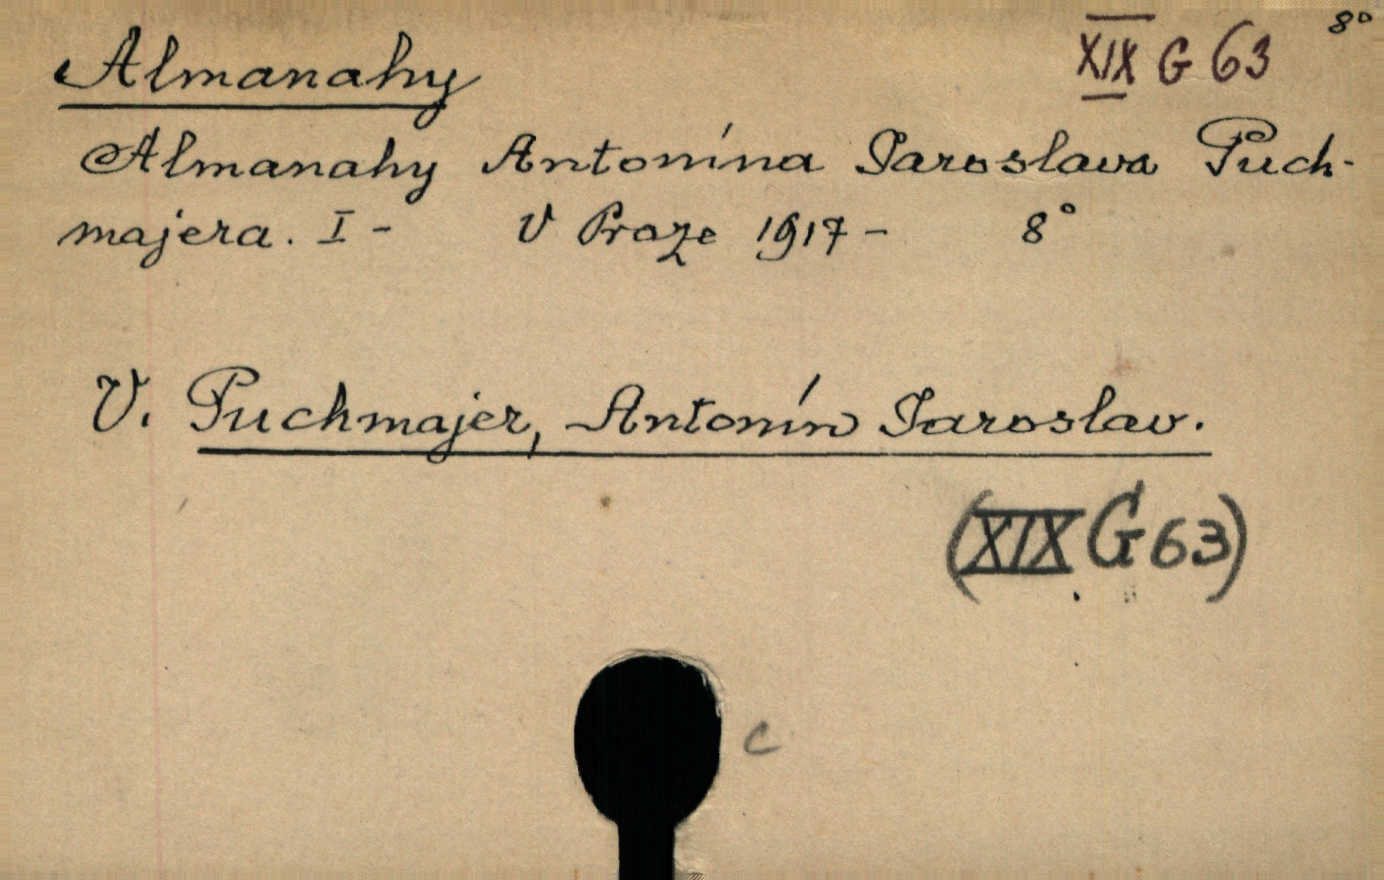 Almanahy XIX G 63 8°
Almanahy Antonína Jaroslava Puch-
majera. I - V Praze 1917 - 8°
V. Puchmajer, Antonín Jaroslav.
(XIX G 63)
c